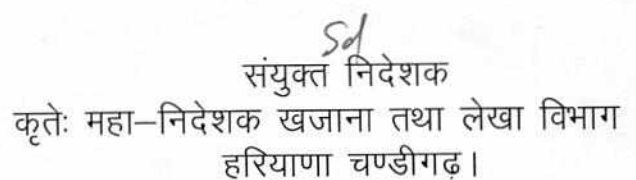 Sd
संयुक्त निदेशक
कृतेः महा–निदेशक खजाना तथा लेखा विभाग
हरियाणा चण्डीगढ़।